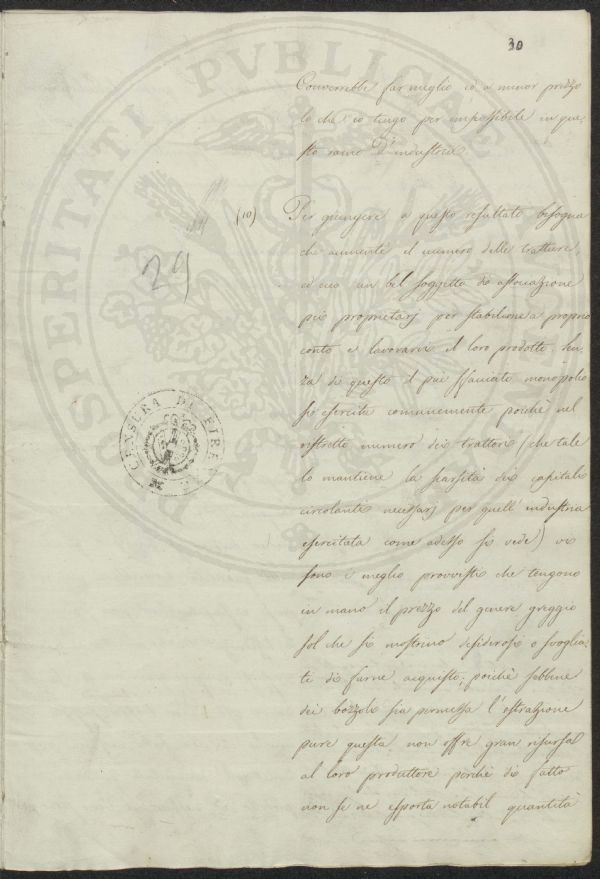 30
Converrebbe far meglio ed a minor prezzo
lo che io tengo per impossibile in que=
sto ramo d'industria.
29
(10) Per giungere a questo resultato bisogna
che aumenti il numero delle trattiere,
ed ecco un bel soggetto di associazione
più proprietarj per stabilirne a proprio
conto e lavorarvi il loro prodotto. Sen=
za di questo il più sfacciato monopolio
si esercita comunemente poichè nel
ristretto numero dei trattori (che tale
lo mantiene la scarsità dei capitali
circolanti necessarj per quell'industria
esercitata come adesso si vede) vi
sono i meglio provvisti che tengono
in mano il prezzo del genere greggio
sol che si mostrino desiderosi o svoglia=
ti di farne acquisto; poichè sebbene
dei bozzoli sia permessa l'estrazione
pure questa non offre gran risorsa
al loro produttore perchè di fatto
non se ne esporta notabil quantità
CENSURA DI FIRE
PROSPERITATI PUBLICAE